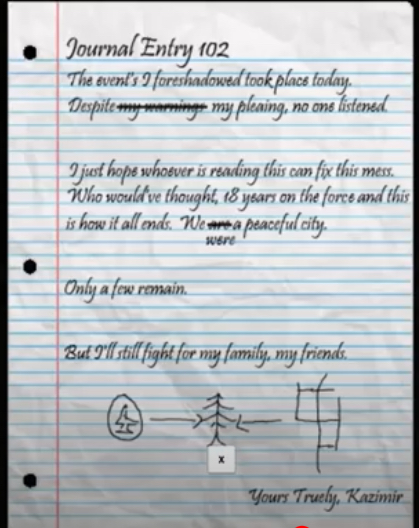 Journal Entry 102
The event's I foreshadowed took place today.
Despite my warnings my pleaing, no one listened.
I just hope whoever is reading this can fix this mess.
Who would've thought, 18 years on the force and this
is how it all ends. We are a peaceful city.
were
Only a few remain.
But I'll still fight for my family, my friends.
x
Yours Truely, Kazimir